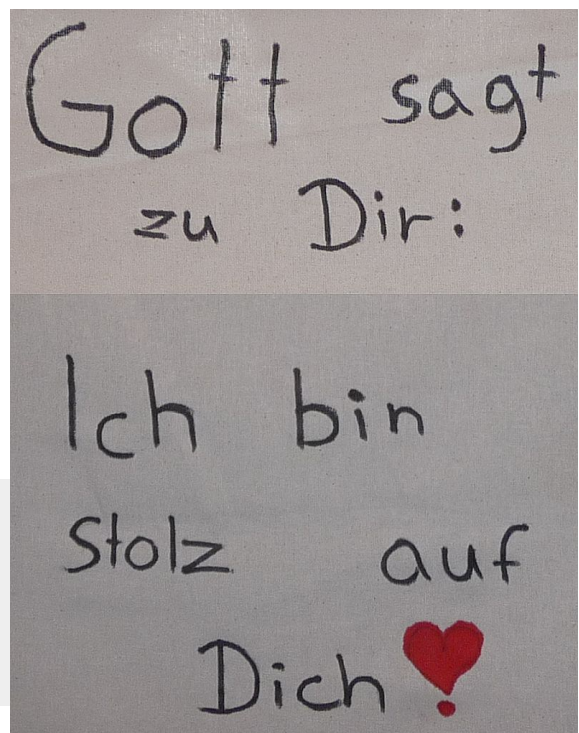 Gott sagt
zu Dir:
Ich bin
Stolz auf
Dich❣